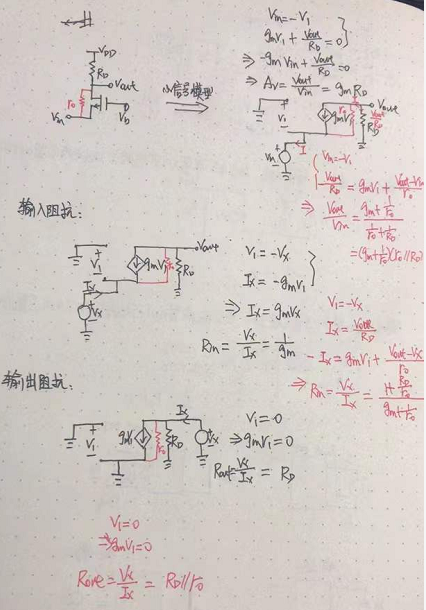 Vin=-V1
gmV1+Vout/RD=0
⇒-gmVin+Vout/RD=0
⇒Av=Vout/Vin=gmRD
VDD
RD
Vout
r0
Vin
Vb
小信号模型
V1
gmV1
r0
Vout
RD
Vin
I
Vin=-V1
-Vout/RD=gmV1+(Vout-Vin)/r0
⇒Vout/Vin=(gm+1/r0)/(1/r0+1/RD)
=(gm+1/r0)(r0//RD)
输入阻抗:
V1
gmV1
r0
RD
Vout
Ix
Vx
V1=-Vx
Ix=-gmV1
⇒Ix=gmVx
Rin=Vx/Ix=1/gm
V1=-Vx
Ix=Vout/RD
-Ix=gmV1+(Vout-Vx)/r0
⇒Rin=Vx/Ix=(1+RD/r0)/(gm+1/r0)
输出阻抗:
V1
gmV1
r0
RD
Ix
Vx
V1=0
⇒gmV1=0
Rout=Vx/Ix=RD
V1=0
⇒gmV1=0
Rout=Vx/Ix=RD//r0